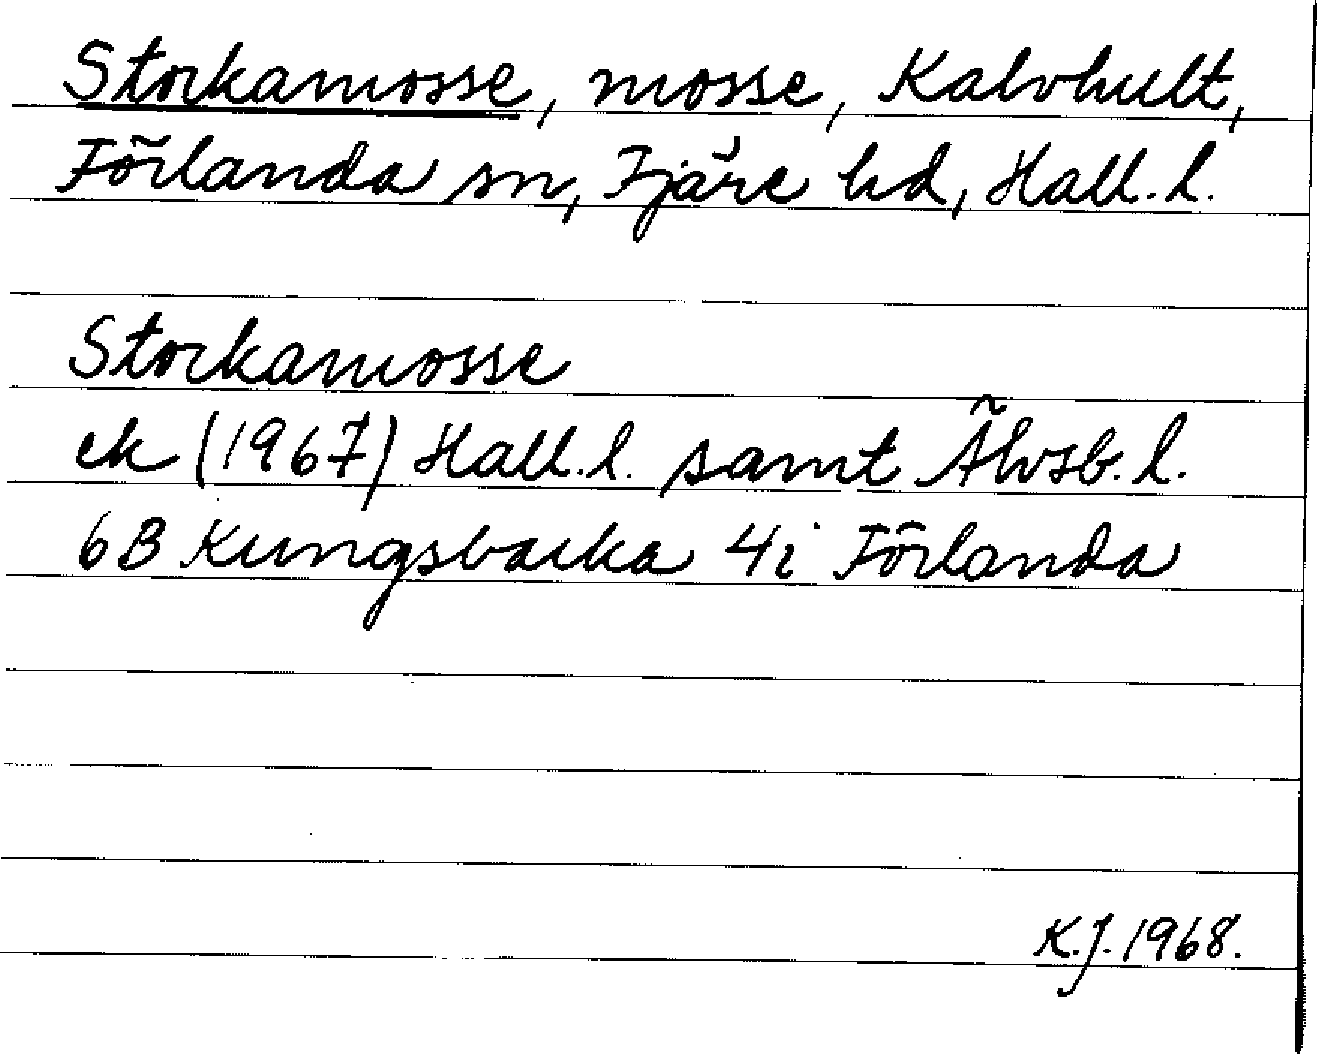 Storkamosse, mosse, Kalvhult,
Förlanda sn, Fjäre hd, Hall. l.
Storkamosse
ek (1967) Hall. l. samt Älvsb. l.
6B Kungsbacka 4i Förlanda
K.J. 1968.